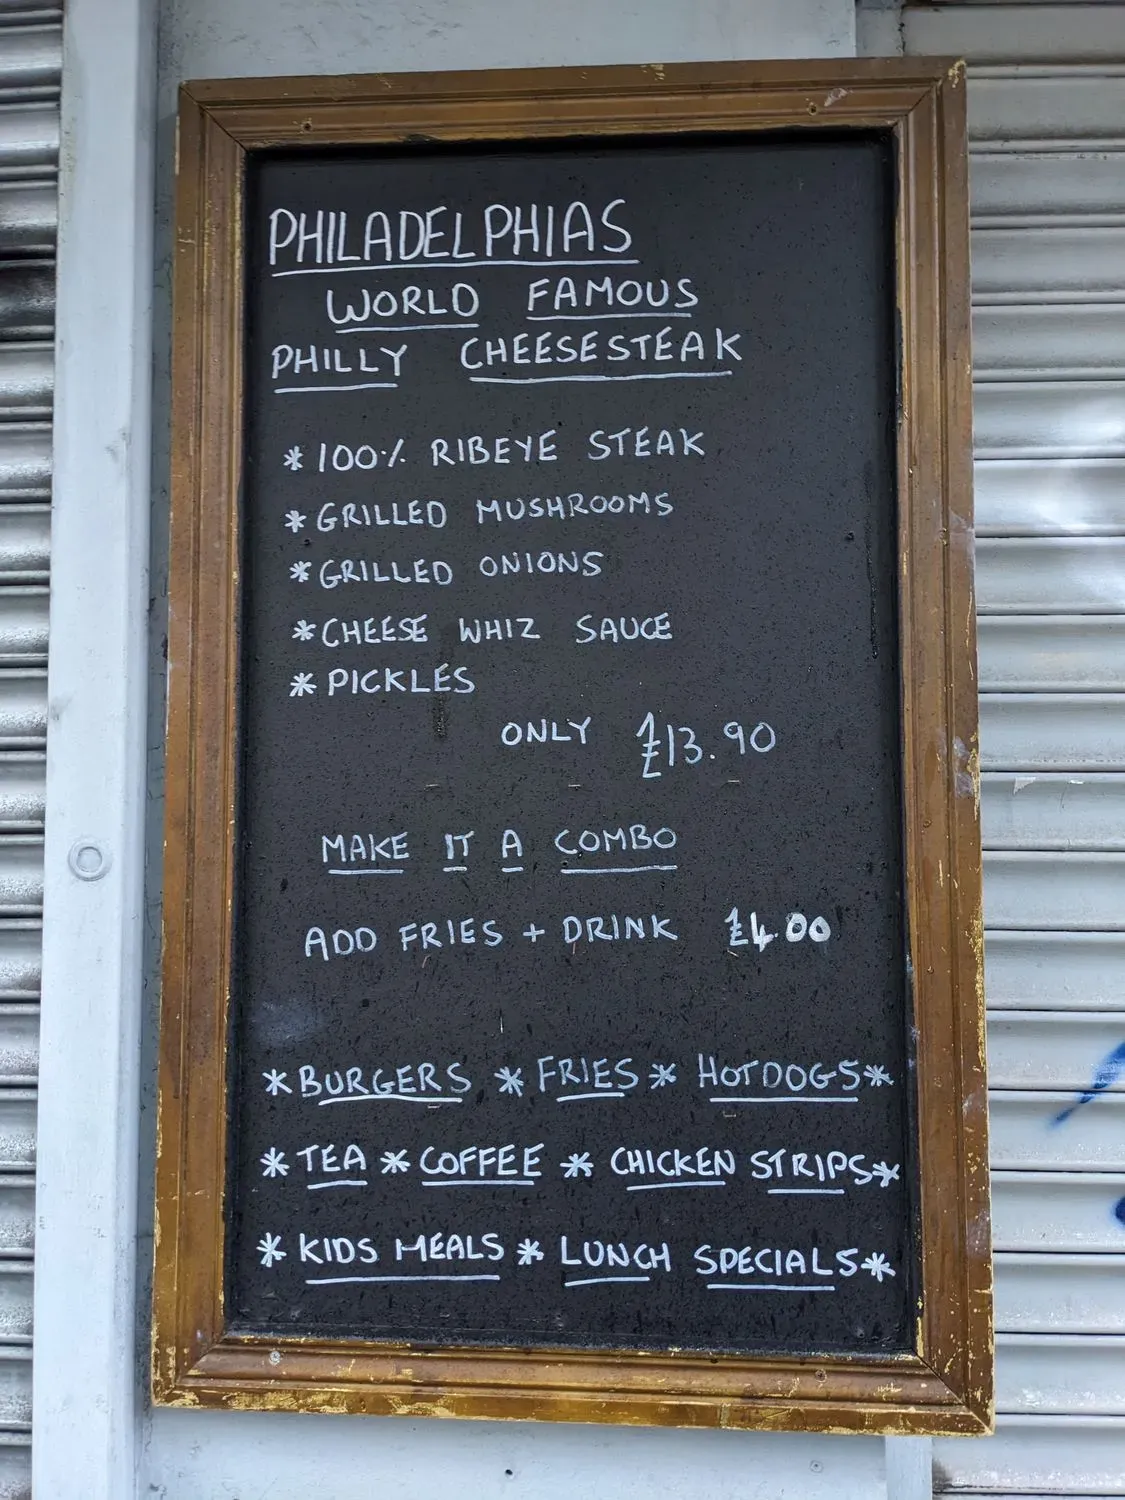 PHILADELPHIAS
WORLD FAMOUS
PHILLY CHEESESTEAK
* 100% RIBEYE STEAK
* GRILLED MUSHROOMS
* GRILLED ONIONS
* CHEESE WHIZ SAUCE
* PICKLES
ONLY £13.90
MAKE IT A COMBO
ADD FRIES + DRINK £4.00
* BURGERS * FRIES * HOTDOGS *
* TEA * COFFEE * CHICKEN STRIPS *
* KIDS MEALS * LUNCH SPECIALS *